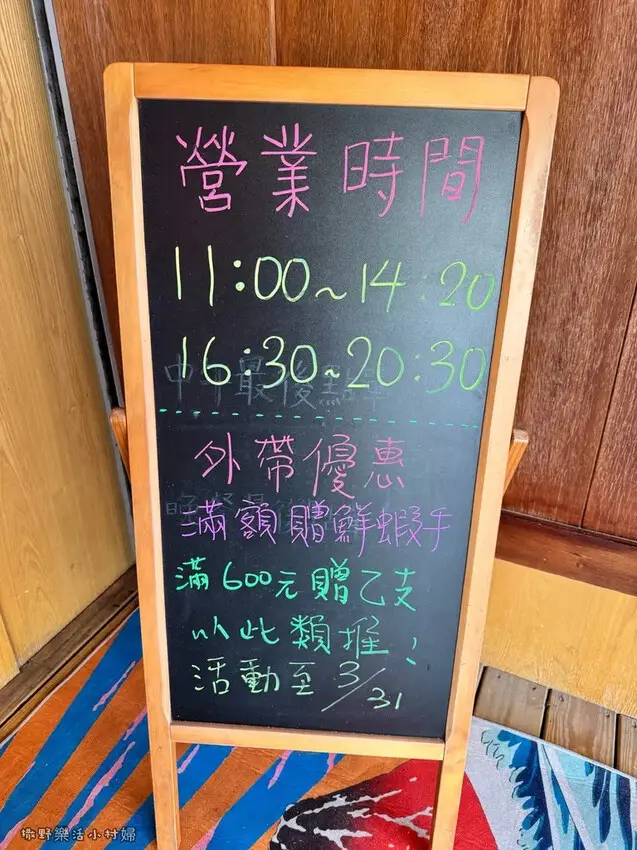 營業時間
11:00~14:20
16:30~20:30
外帶優惠
滿額贈鮮蝦手
滿600元贈乙支
以此類推!
活動至3/31
撒野樂活小村婦